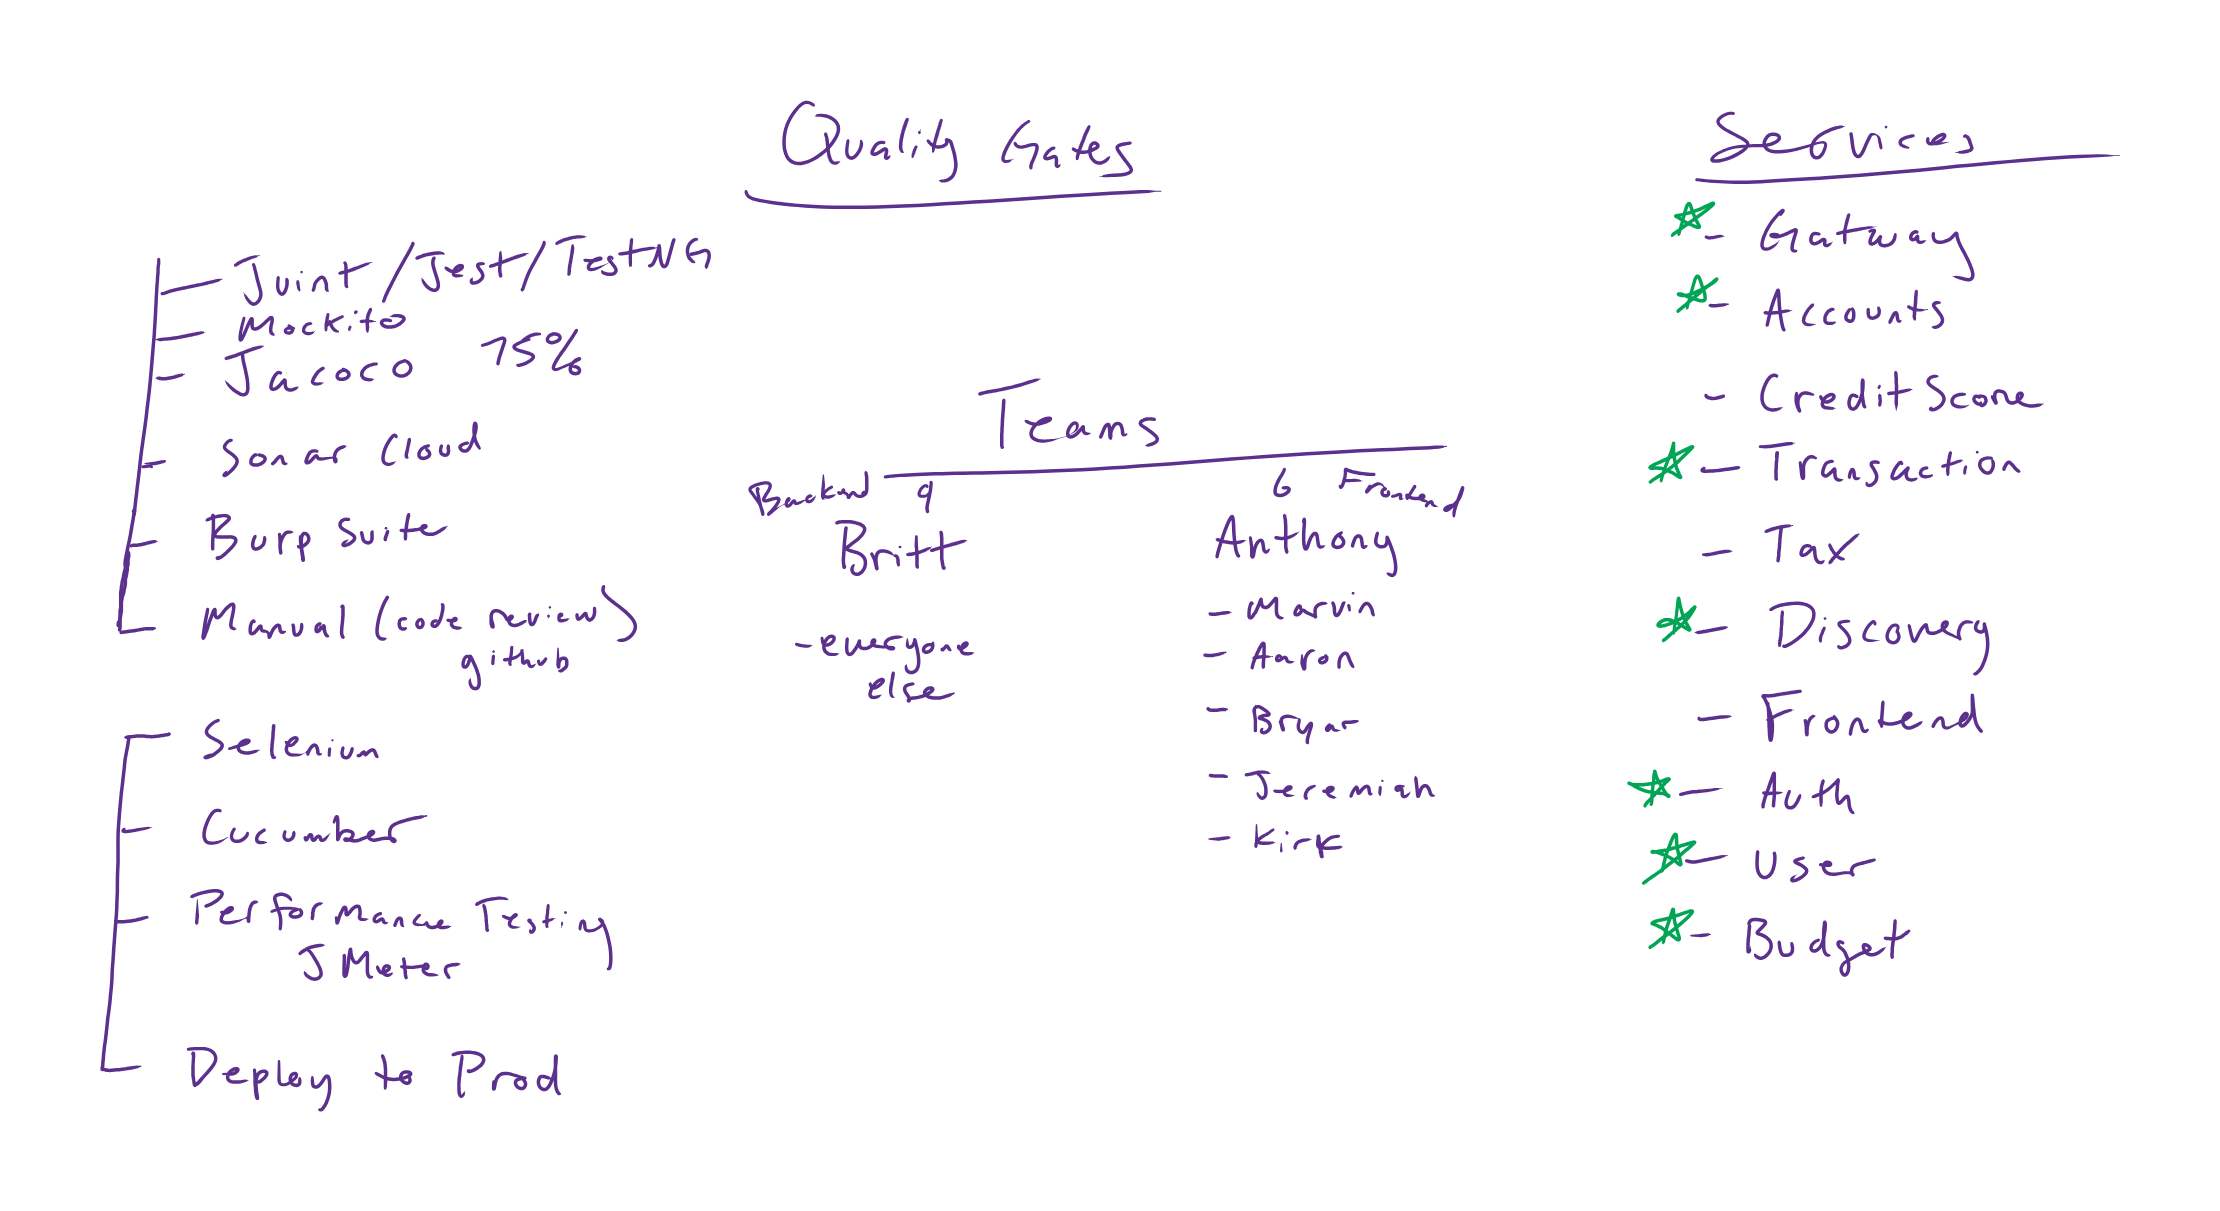 Quality Gates
Juint/Jest/TestNG
Mockito
Jacoco 75%
Sonar Cloud
Burp Suite
Manual (code review)
github
Selenium
Cucumber
Performance Testing
JMeter
Deploy to Prod
Teams
Backend 9
Britt
-everyone
else
6 Frontend
Anthony
- Marvin
- Aaron
- Bryar
- Jeremiah
- Kirk
Services
- Gatway
- Accounts
- Credit Score
- Transaction
- Tax
- Discovery
- Frontend
- Auth
- User
- Budget